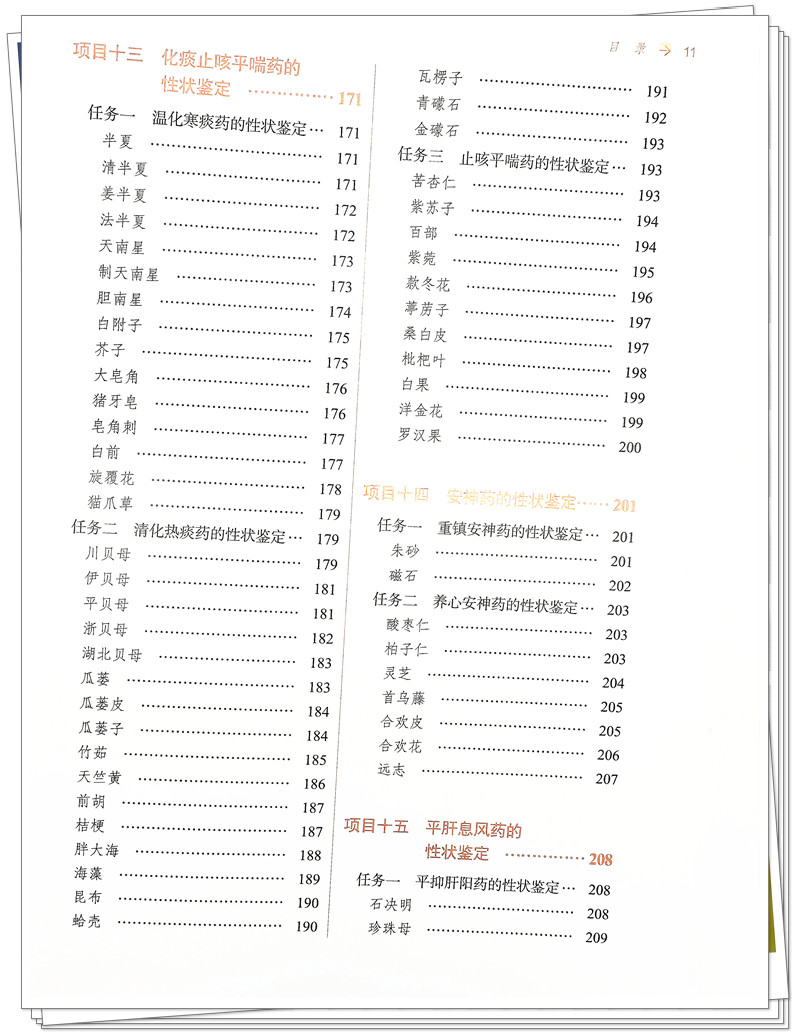 目 录 → 11
项目十三 化痰止咳平喘药的
性状鉴定 …………… 171
任务一 温化寒痰药的性状鉴定… 171
半夏 …………………… 171
清半夏 …………………… 171
姜半夏 …………………… 172
法半夏 …………………… 172
天南星 …………………… 173
制天南星 …………………… 173
胆南星 …………………… 174
白附子 …………………… 175
芥子 …………………… 175
大皂角 …………………… 176
猪牙皂 …………………… 176
皂角刺 …………………… 177
白前 …………………… 177
旋覆花 …………………… 178
猫爪草 …………………… 179
任务二 清化热痰药的性状鉴定… 179
川贝母 …………………… 179
伊贝母 …………………… 181
平贝母 …………………… 181
浙贝母 …………………… 182
湖北贝母 …………………… 183
瓜蒌 …………………… 183
瓜蒌皮 …………………… 184
瓜蒌子 …………………… 184
竹茹 …………………… 185
天竺黄 …………………… 186
前胡 …………………… 187
桔梗 …………………… 187
胖大海 …………………… 188
海藻 …………………… 189
昆布 …………………… 190
蛤壳 …………………… 190
瓦楞子 …………………… 191
青礞石 …………………… 192
金礞石 …………………… 193
任务三 止咳平喘药的性状鉴定… 193
苦杏仁 …………………… 193
紫苏子 …………………… 194
百部 …………………… 194
紫菀 …………………… 195
款冬花 …………………… 196
葶苈子 …………………… 197
桑白皮 …………………… 197
枇杷叶 …………………… 198
白果 …………………… 199
洋金花 …………………… 199
罗汉果 …………………… 200
项目十四 安神药的性状鉴定…… 201
任务一 重镇安神药的性状鉴定… 201
朱砂 …………………… 201
磁石 …………………… 202
任务二 养心安神药的性状鉴定… 203
酸枣仁 …………………… 203
柏子仁 …………………… 203
灵芝 …………………… 204
首乌藤 …………………… 205
合欢皮 …………………… 205
合欢花 …………………… 206
远志 …………………… 207
项目十五 平肝息风药的
性状鉴定 …………… 208
任务一 平抑肝阳药的性状鉴定… 208
石决明 …………………… 208
珍珠母 …………………… 209